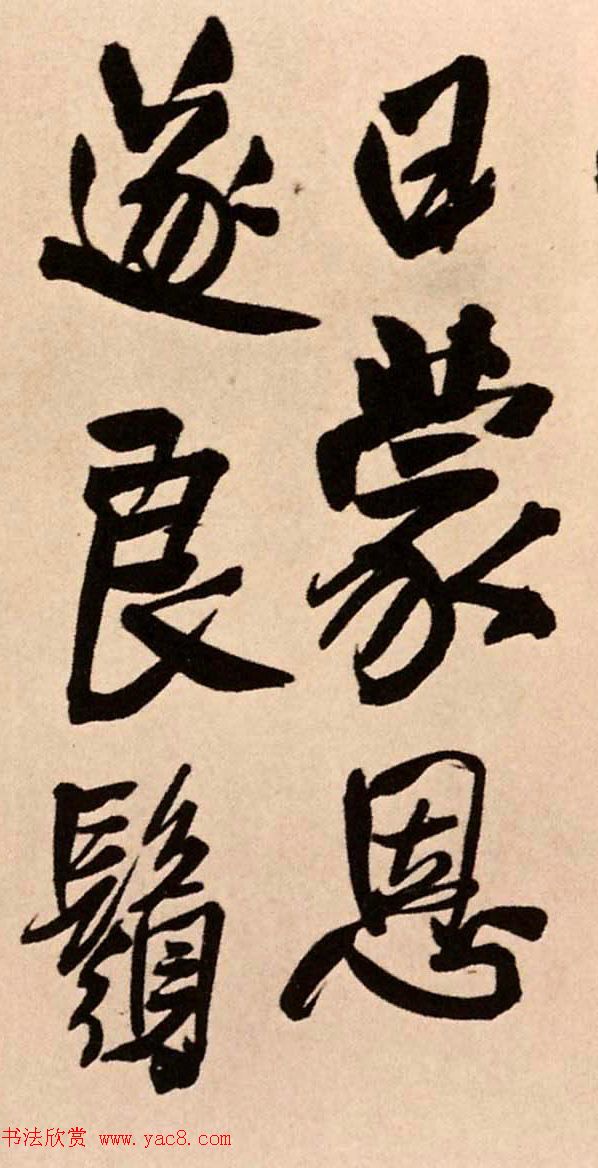 日蒙恩
遂良鬚
书法欣赏 www.yac8.com